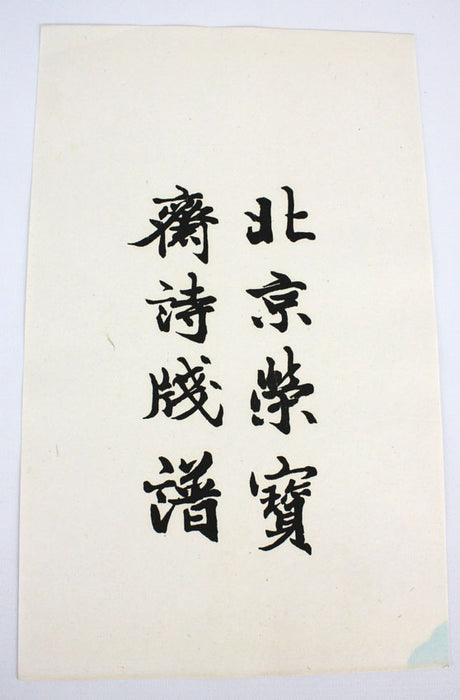 北京榮寶
齋詩牋譜